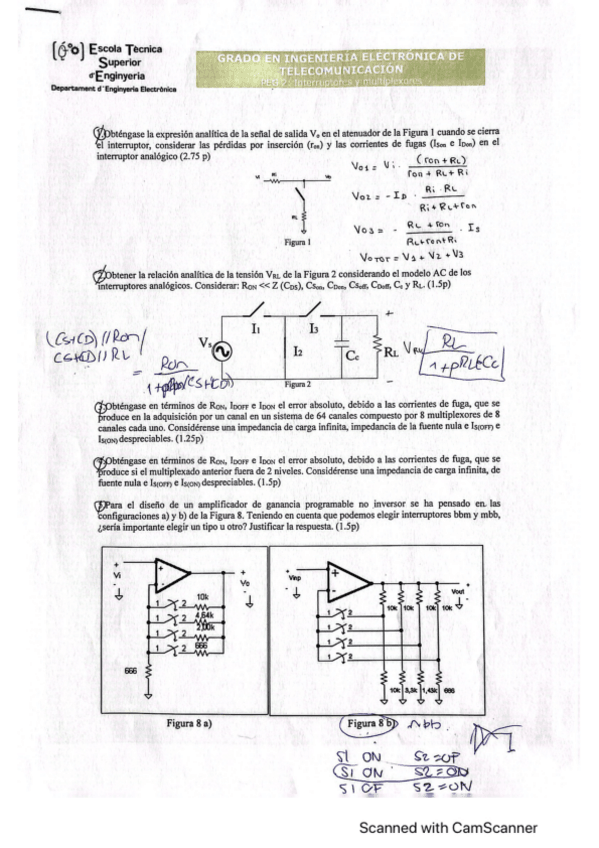 Escola Tècnica
Superior
d'Enginyeria
Departament d'Enginyeria Electrònica
GRADO EN INGENIERÍA ELECTRÓNICA DE
TELECOMUNICACIÓN
Interruptores y multiplexores
Obténgase la expresión analítica de la señal de salida Vo en el atenuador de la Figura 1 cuando se cierra
el interruptor, considerar las pérdidas por inserción (ron) y las corrientes de fugas (ISon e IDon) en el
interruptor analógico (2.75 p)
Vo1 = Vi · (ron + RL) / ron + RL + Ri
Vo2 = - ID · Ri · RL / Ri + RL + ron
Vo3 = - RL + ron / RL + ron + Ri · Is
VoTOT = V1 + V2 + V3
RL
Figura 1
2) Obtener la relación analítica de la tensión VRL de la Figura 2 considerando el modelo AC de los
interruptores analógicos. Considerar: RON << Z (CDS), CSon, CDon, CSoff, CDoff, Cs y RL. (1.5p)
(Cs+CD)//Ron/
I1
I3
Vs
I2
Cc
RL
Figura 2
Obténgase en términos de RON, IDOFF e IDON el error absoluto, debido a las corrientes de fuga, que se
produce en la adquisición por un canal en un sistema de 64 canales compuesto por 8 multiplexores de 8
canales cada uno. Considérense una impedancia de carga infinita, impedancia de la fuente nula e IS(OFF) e
IS(ON) despreciables. (1.25p)
Obténgase en términos de RON, IDOFF e IDON el error absoluto, debido a las corrientes de fuga, que se
produce si el multiplexado anterior fuera de 2 niveles. Considérense una impedancia de carga infinita, de
fuente nula e IS(OFF) e IS(ON) despreciables. (1.5p)
Para el diseño de un amplificador de ganancia programable no inversor se ha pensado en las
configuraciones a) y b) de la Figura 8. Teniendo en cuenta que podemos elegir interruptores bbm y mbb,
¿sería importante elegir un tipo u otro? Justificar la respuesta. (1.5p)
Vi
Vo
10k
1 2
4,64k
1 2
1 2
666
1 2
666
Vinp
Vout
10k 10k 10k 10k
1 2
1 2
1 2
1 2
10k 3,3k 1,43k 666
Figura 8 a)
Figura 8 b)
S1 ON S2 = OF
S1 ON S2 = ON
S1 OF S2 = ON
Scanned with CamScanner